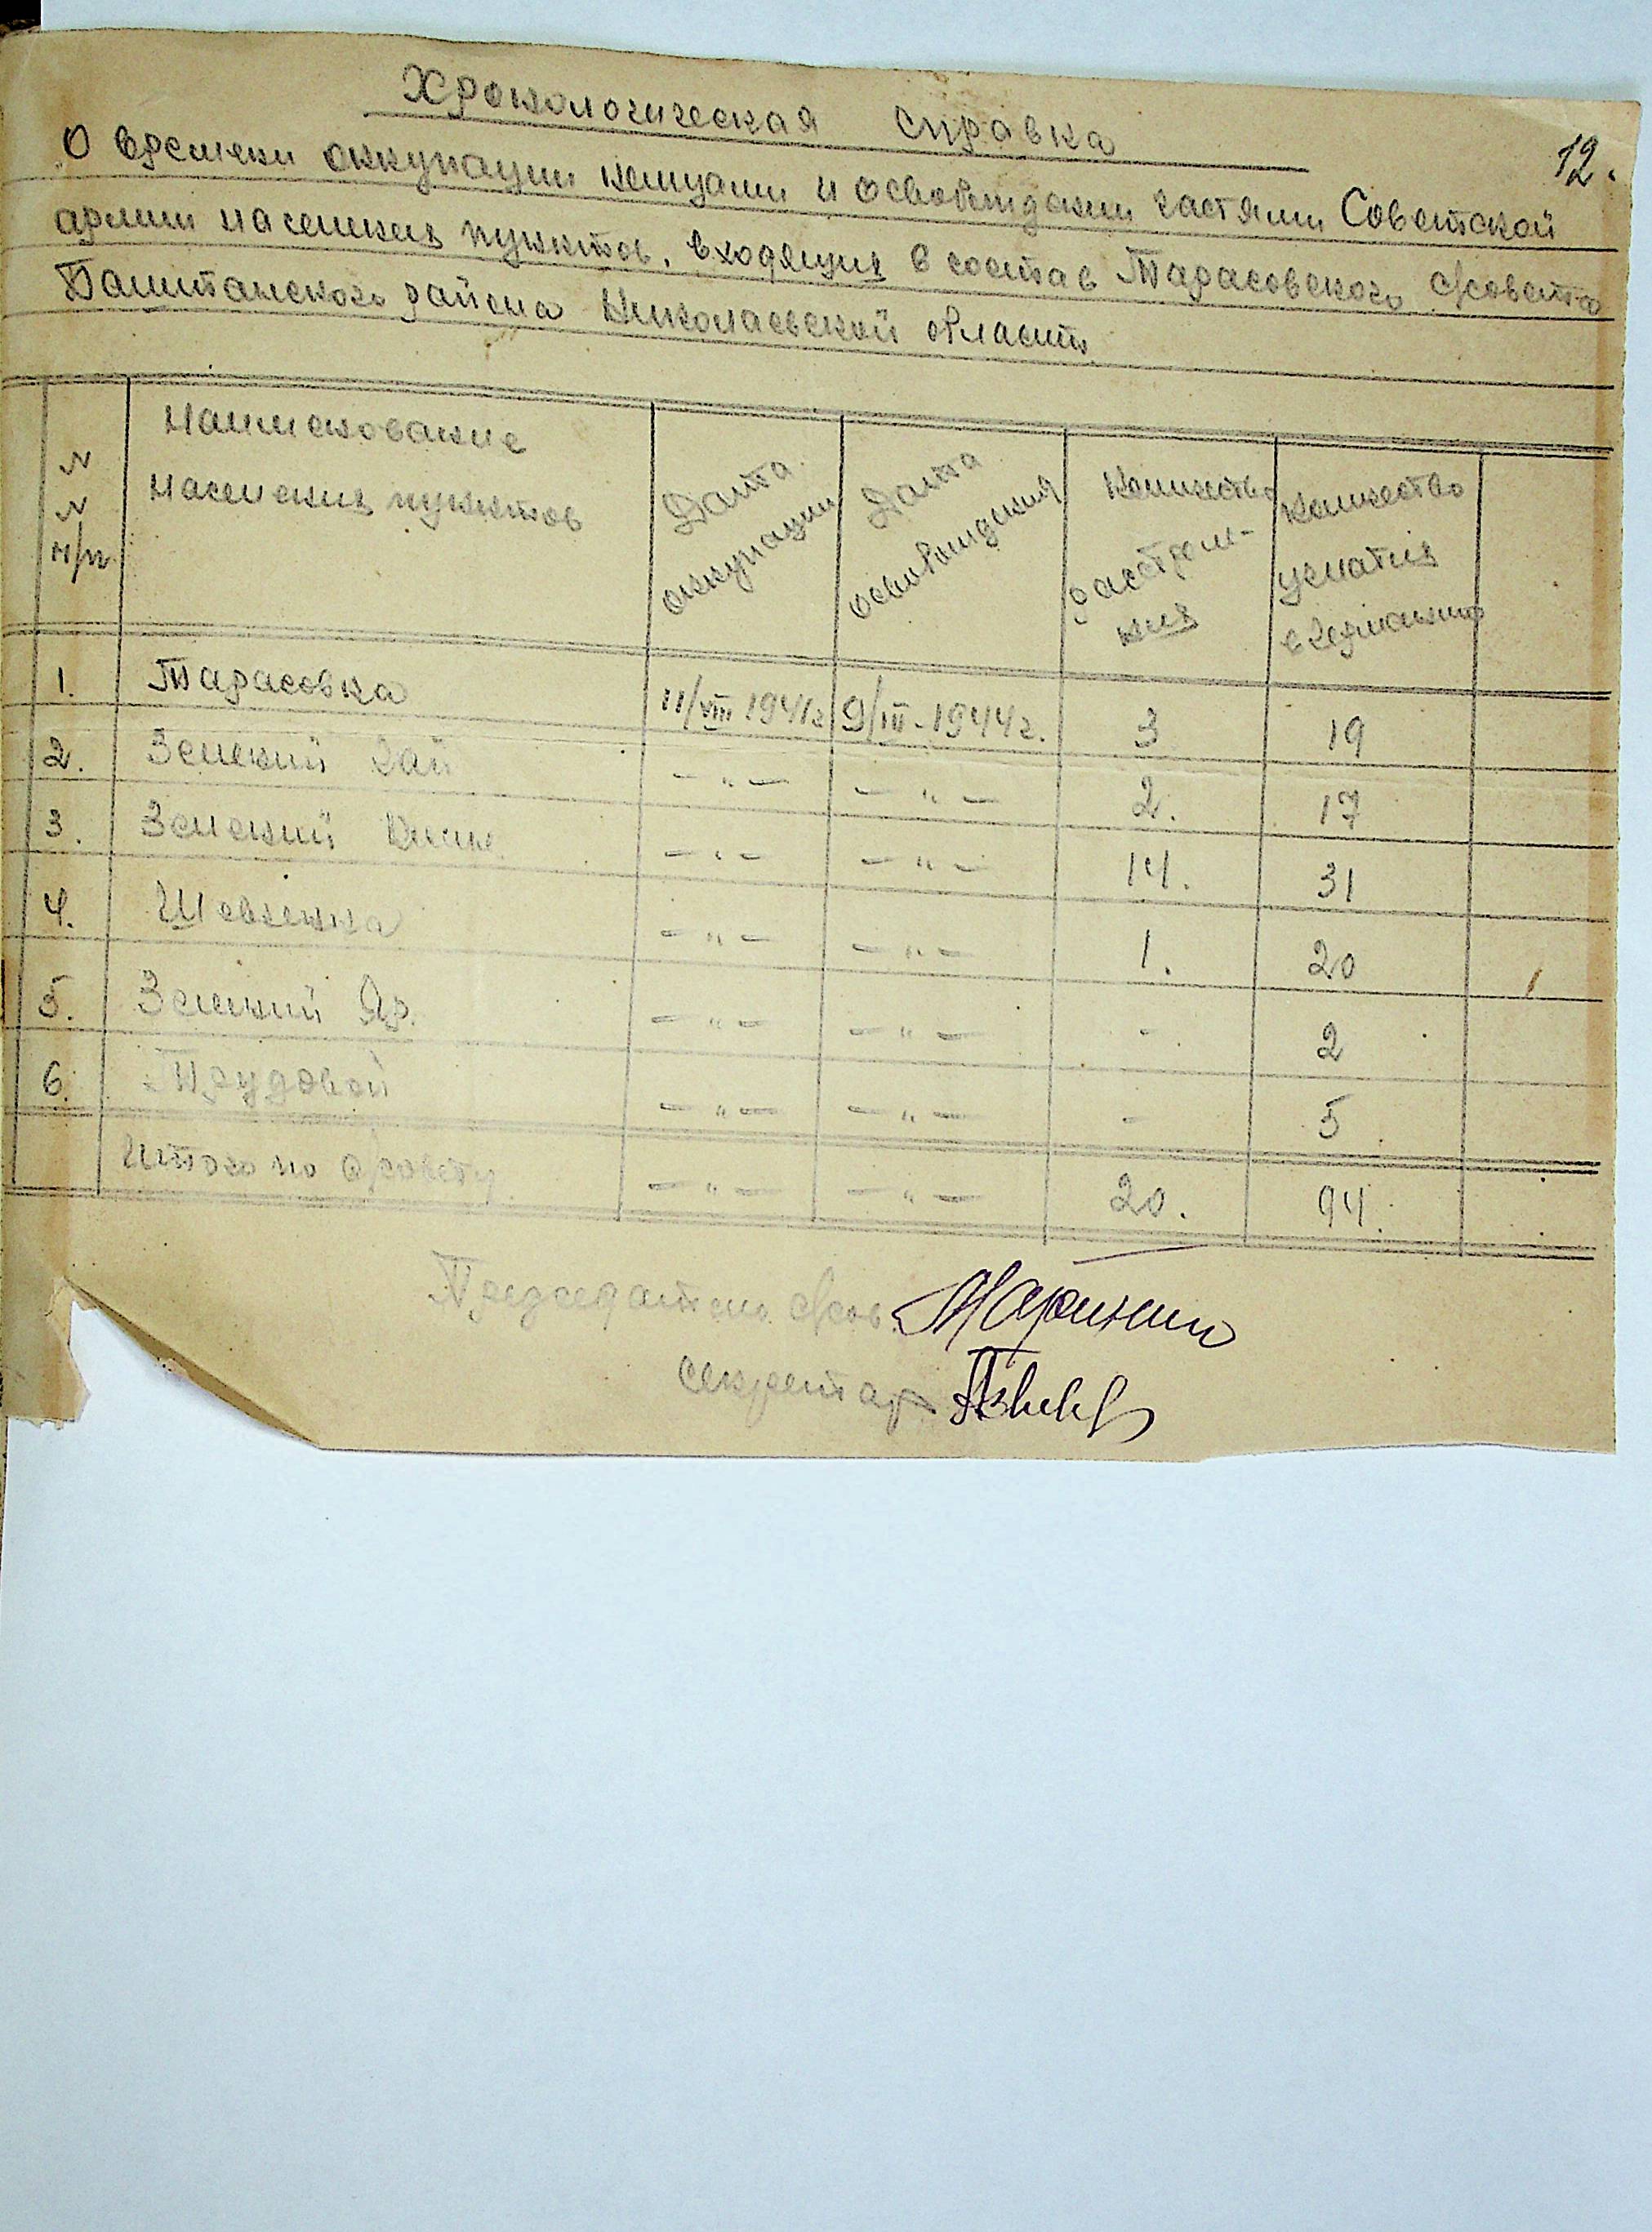 12.
Хронологическая справка
О времени оккупации немцами и освобождении частями Советской
армии населених пунктов, входящих в состав Тарасовского с/совета
Баштанского района Николаевской области
№ № п/п
Наименование населених пунктов
Дата оккупации
Дата освобождения
Количество расстрелян-них
Количество угнатих в Германию
1. Тарасовка 11/VIII 1941г 9/III-1944г. 3 19
2. Зелений Гай — " — — " — 2. 17
3. Зелений — " — — " — 14. 31
4. Шевченка — " — — " — 1. 20
5. Зелений Яр. — " — — " — - 2
6. Трудовой — " — — " — - 5
Итого по с/совету — " — — " — 20. 94.
Председатель с/сов.
секретар